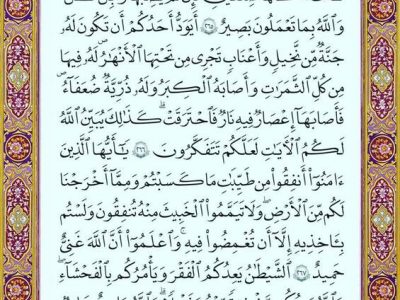 وَٱللَّهُ بِمَا تَعْمَلُونَ بَصِيرٌ ٢٦٥ أَيَوَدُّ أَحَدُكُمْ أَن تَكُونَ لَهُۥ
جَنَّةٌ مِّن نَّخِيلٍ وَأَعْنَابٍ تَجْرِى مِن تَحْتِهَا ٱلْأَنْهَٰرُ لَهُۥ فِيهَا
مِن كُلِّ ٱلثَّمَرَٰتِ وَأَصَابَهُ ٱلْكِبَرُ وَلَهُۥ ذُرِّيَّةٌ ضُعَفَآءُ
فَأَصَابَهَآ إِعْصَارٌ فِيهِ نَارٌ فَٱحْتَرَقَتْ ۗ كَذَٰلِكَ يُبَيِّنُ ٱللَّهُ
لَكُمُ ٱلْآيَٰتِ لَعَلَّكُمْ تَتَفَكَّرُونَ ٢٦٦ يَٰٓأَيُّهَا ٱلَّذِينَ
ءَامَنُوٓا۟ أَنفِقُوا۟ مِن طَيِّبَٰتِ مَا كَسَبْتُمْ وَمِمَّآ أَخْرَجْنَا
لَكُم مِّنَ ٱلْأَرْضِ ۖ وَلَا تَيَمَّمُوا۟ ٱلْخَبِيثَ مِنْهُ تُنفِقُونَ وَلَسْتُم
بِـَٔاخِذِيهِ إِلَّآ أَن تُغْمِضُوا۟ فِيهِ ۚ وَٱعْلَمُوٓا۟ أَنَّ ٱللَّهَ غَنِىٌّ
حَمِيدٌ ٢٦٧ ٱلشَّيْطَٰنُ يَعِدُكُمُ ٱلْفَقْرَ وَيَأْمُرُكُم بِٱلْفَحْشَآءِ ۖ